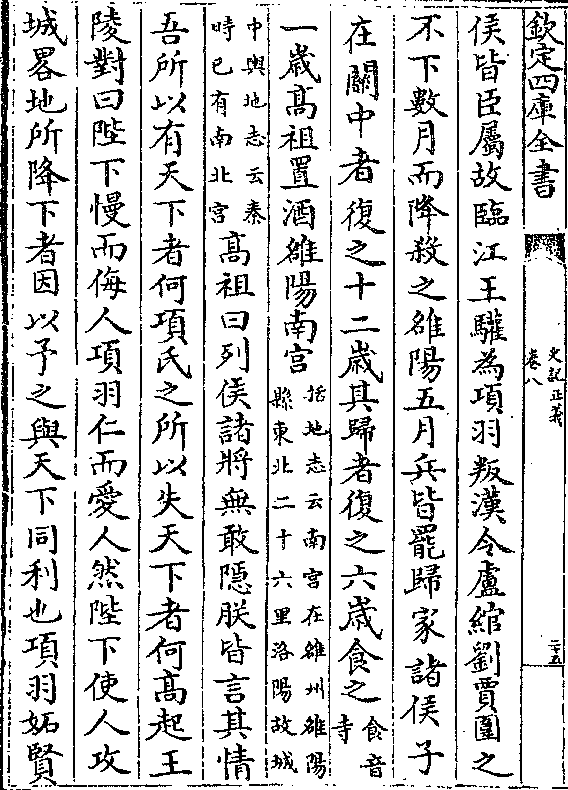 欽定四庫全書
史記正義
卷八
二十五
侯皆臣屬故臨江王驩為項羽叛漢令盧綰劉賈圍之
不下數月而降殺之雒陽五月兵皆罷歸家諸侯子
在關中者復之十二歳其歸者復之六歳食之食音
寺
一歳髙祖置酒雒陽南宫括地志云南宫在雒州雒陽
縣東北二十六里洛陽故城
中輿地志云秦
時已有南北宫髙祖曰列侯諸將無敢隠朕皆言其情
吾所以有天下者何項氏之所以失天下者何髙起王
陵對曰陛下慢而侮人項羽仁而愛人然陛下使人攻
城畧地所降下者因以予之與天下同利也項羽妬賢